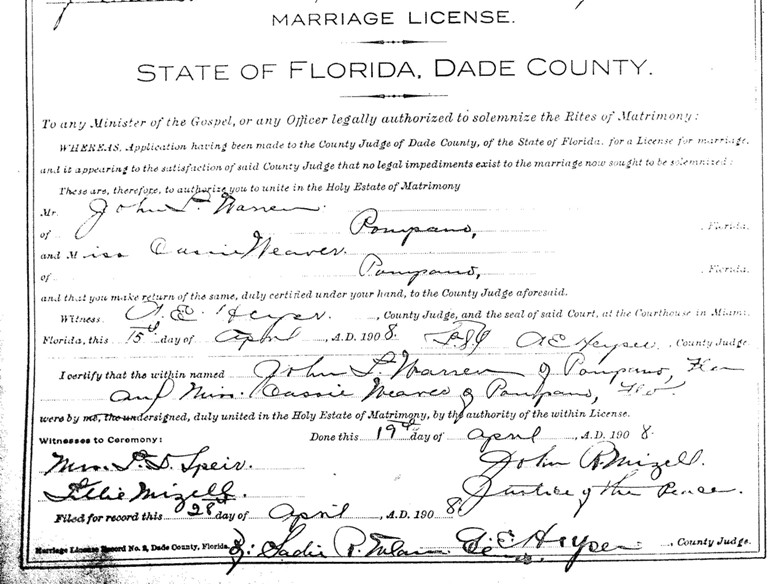 MARRIAGE LICENSE.
STATE OF FLORIDA, DADE COUNTY.
To any Minister of the Gospel, or any Officer legally authorized to solemnize the Rites of Matrimony:
WHEREAS, Application having been made to the County Judge of Dade County, of the State of Florida, for a License for marriage,
and it appearing to the satisfaction of said County Judge that no legal impediments exist to the marriage now sought to be solemnized:
These are, therefore, to authorize you to unite in the Holy Estate of Matrimony
Mr. John Warren
of Pompano, , Florida,
and Miss Cassie Weaver.
of Pompano, , Florida,
and that you make return of the same, duly certified under your hand, to the County Judge aforesaid.
Witness A. E. Heyser. , County Judge, and the seal of said Court, at the Courthouse in Miami,
Florida, this 15th day of April , A.D. 1908. A E Heyser , County Judge.
I certify that the within named John Warren of Pompano, Fla
and Miss. Cassie Weaver of Pompano, Fla.
were by me, the undersigned, duly united in the Holy Estate of Matrimony, by the authority of the within License.
Witnesses to Ceremony: Done this 19th day of April , A.D. 1908.
Mrs. Speir. John R Mizell.
Lillie Mizell. Justice of the Peace.
Filed for record this 28 day of April , A.D. 1908.
Marriage License Record No. 2, Dade County, Florida. By: Sadie E Heyser , County Judge.